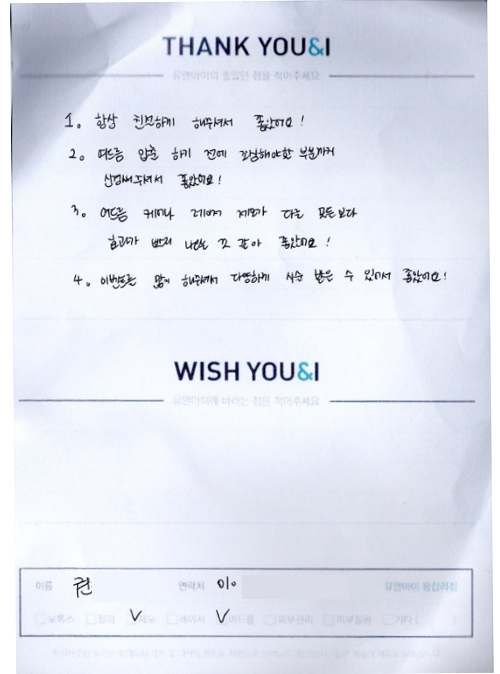 THANK YOU&I
유앤아이의 좋았던 점을 적어주세요
1. 항상 친절하게 해주셔서 좋았어요!
2. 여드름 압출 하기 전에 관리해야할 부분까지
신경써주셔서 좋았어요!
3. 여드름 케어나 레이저 제모가 다른 곳보다
효과가 빨리 나타난 것 같아 좋았어요!
4. 이벤트를 많이 해주셔서 다양하게 시술 받을 수 있어서 좋았어요!
WISH YOU&I
유앤아이에 바라는 점을 적어주세요
이름 권 연락처 010 유앤아이
보톡스 필러 제모 레이저 여드름 피부관리 피부질환 기타 ( )